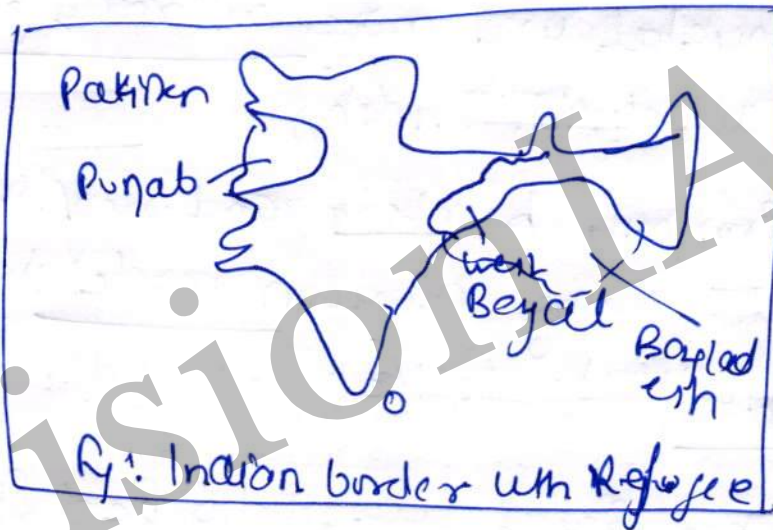 Pakisten
Punjab
West
Beycil
Bangladesh
Fig: Indian border with Refugee
isionIA